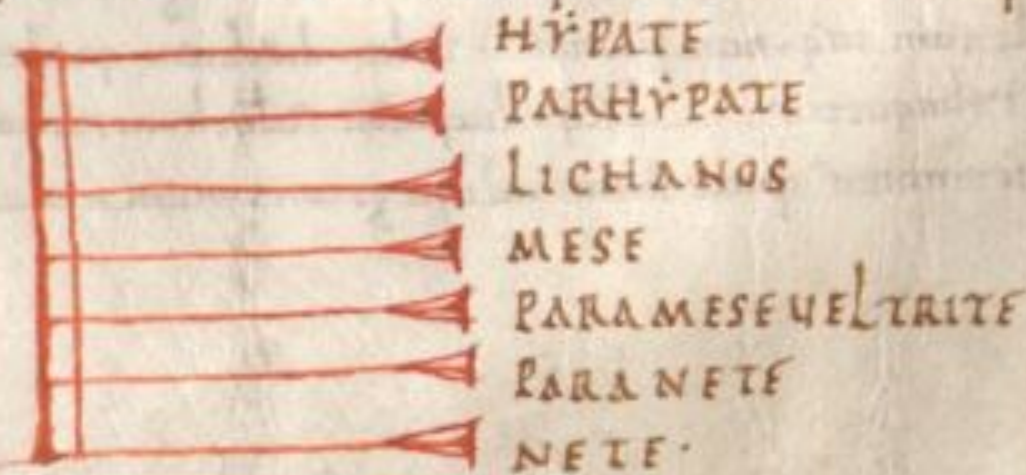 HẎPATE
PARHẎPATE
LICHANOS
MESE
PARAMESE VEL TRITE
PARANETE
NETE·